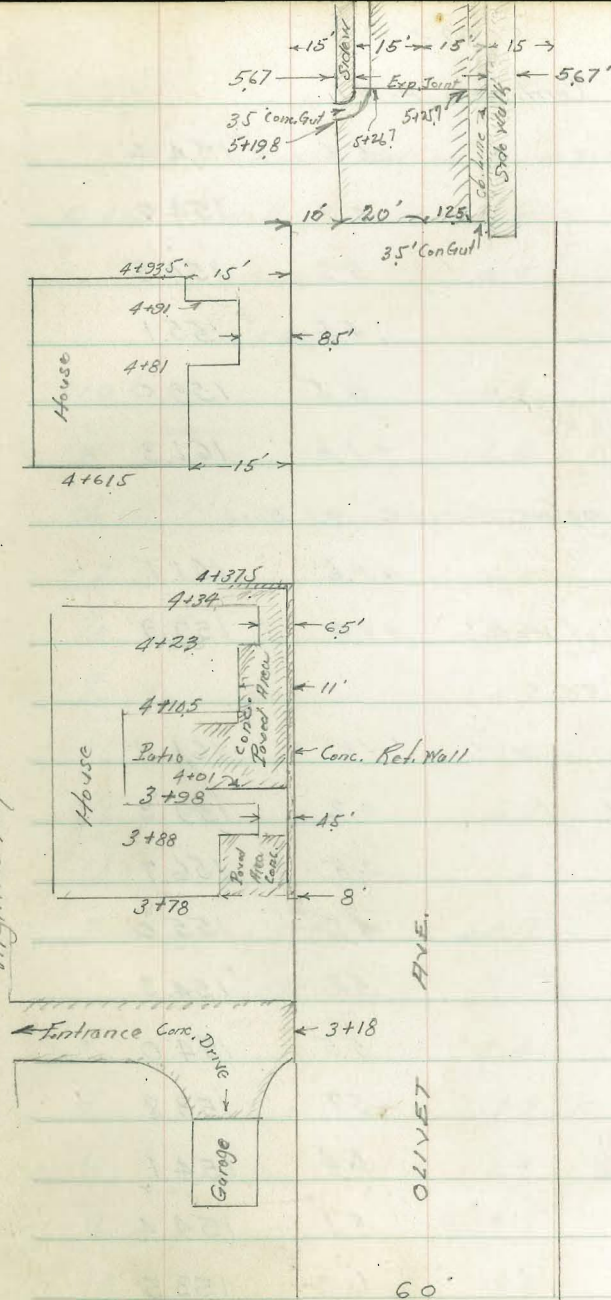 15' 15' 15' 15
Sidew
5.67 Exp. Joint 5.67'
3.5 Conc. Gut 5+25.9
5+19.8 5+26.7
Cb. Line
Side Walk
10' 20' 12.5
3.5' Con Gut
4+93.5 15'
4+91
8.5'
4+81
House
15'
4+61.5
4+37.5
4+34
6.5'
4+23
11'
4+10.5
Conc.
Paved Area
Patio
Conc. Ret. Wall
4+01
House
3+98
4.5'
3+88
Paved
Area
Conc.
3+78
8'
AVE.
Entrance Conc. Drive
3+18
Garage
OLIVET
60'